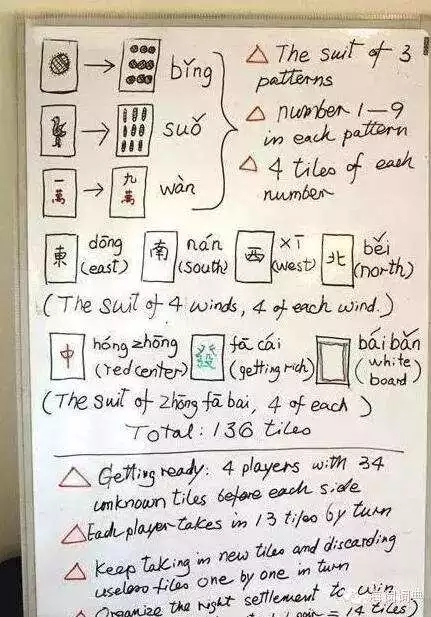 bǐng
suǒ
一萬 九萬 wàn
△ The suit of 3
patterns
△ number 1—9
in each pattern
△ 4 tiles of each
number
東 dōng (east) 南 nán (south) 西 xī (west) 北 běi (north)
(The suit of 4 winds, 4 of each wind.)
中 hóng zhōng (red center) 發 fā cái (getting rich) bái bǎn (white board)
(The suit of zhōng fā bai, 4 of each)
Total: 136 tiles
△ Getting ready: 4 players with 34
unknown tiles before each side
△ Each player takes in 13 tiles by turn
△ Keep taking in new tiles and discarding
useless tiles one by one in turn
△ Organize the right settlement to win
= 14 tiles)